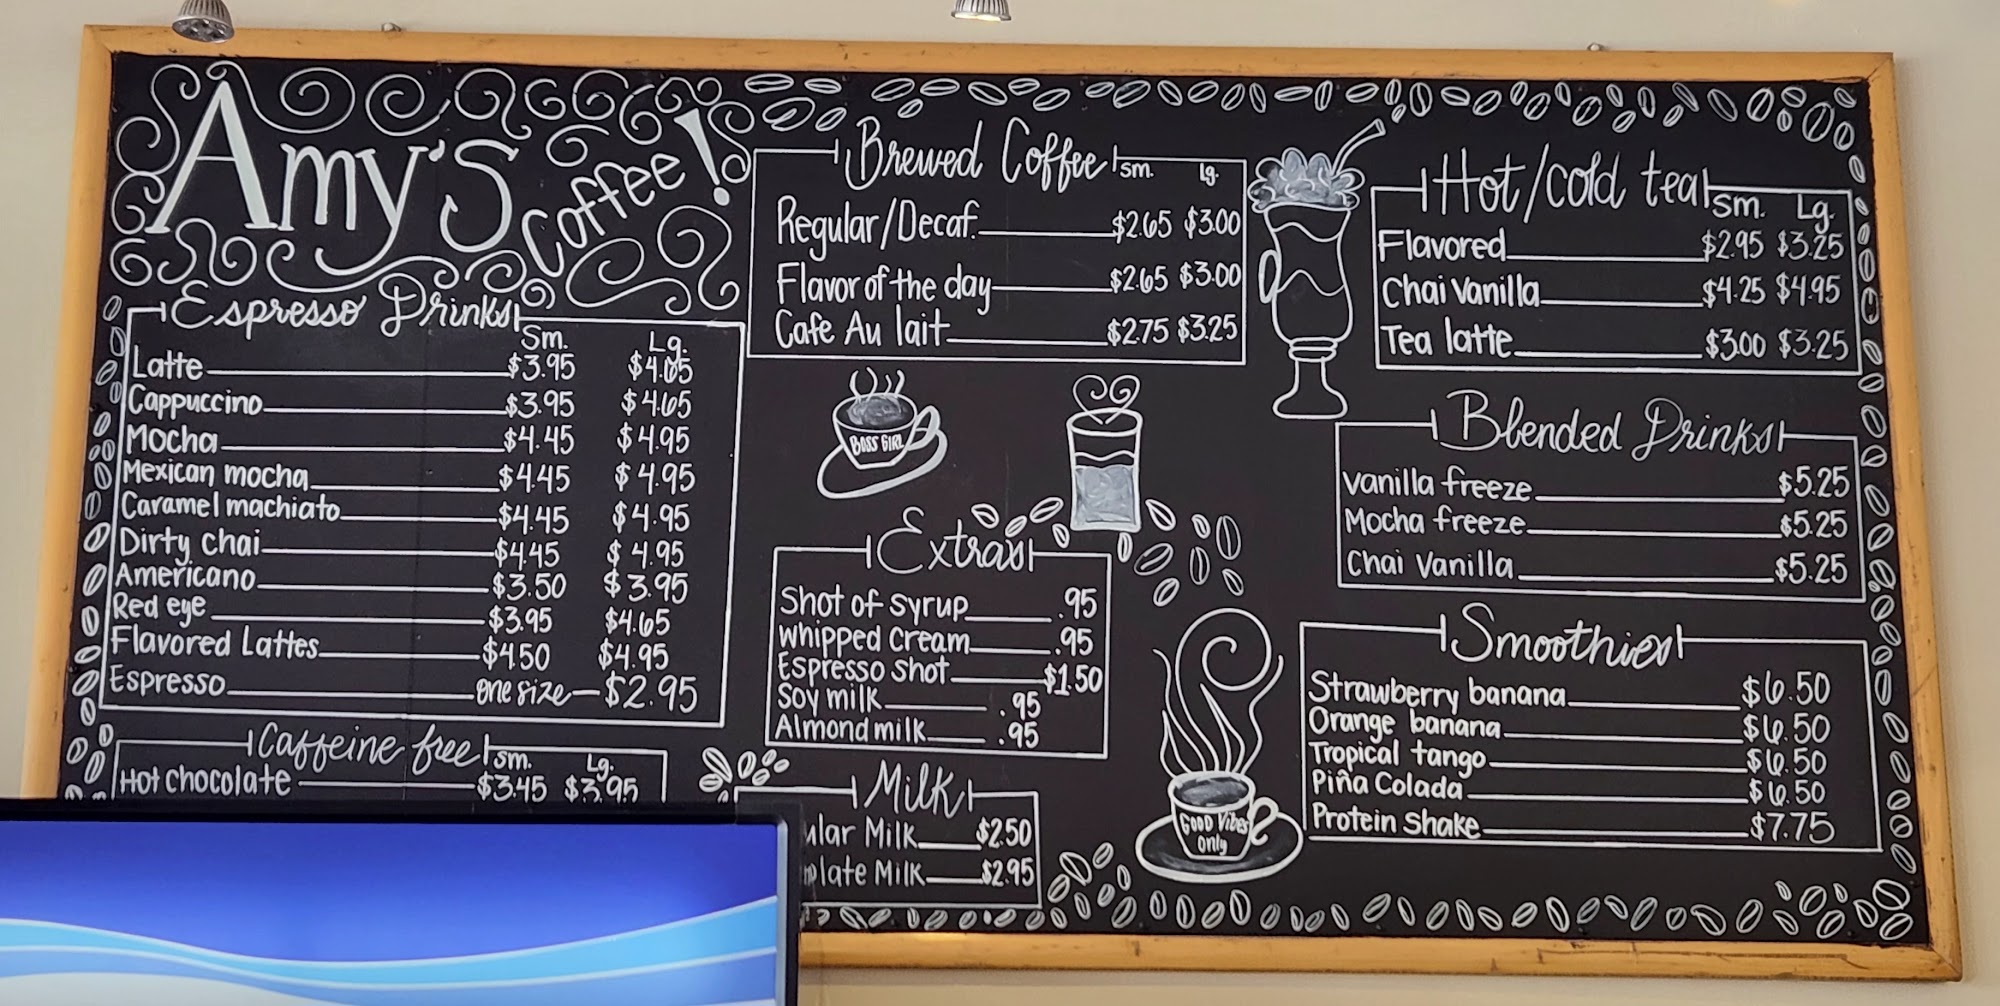 Amy's
Coffee!
Espresso Drinks
Sm. Lg.
Latte $3.95 $4.65
Cappuccino $3.95 $4.65
Mocha $4.45 $4.95
Mexican mocha $4.45 $4.95
Caramel machiato $4.45 $4.95
Dirty chai $4.45 $4.95
Americano $3.50 $3.95
Red eye $3.95 $4.65
Flavored Lattes $4.50 $4.95
Espresso one size $2.95
Caffeine free Sm. Lg.
Hot chocolate $3.45 $3.95
Brewed Coffee Sm. Lg.
Regular/Decaf. $2.65 $3.00
Flavor of the day $2.65 $3.00
Cafe Au lait $2.75 $3.25
BOSS GIRL
Extras
Shot of syrup .95
whipped cream .95
Espresso shot $1.50
Soy milk .95
Almond milk .95
Milk
Milk $2.50
Milk $2.95
GOOD Vibes
Only
Hot/cold tea Sm. Lg.
Flavored $2.95 $3.25
Chai Vanilla $4.25 $4.95
Tea latte $3.00 $3.25
Blended Drinks
Vanilla freeze $5.25
Mocha freeze $5.25
Chai Vanilla $5.25
Smoothies
Strawberry banana $6.50
Orange banana $6.50
Tropical tango $6.50
Piña Colada $6.50
Protein Shake $7.75